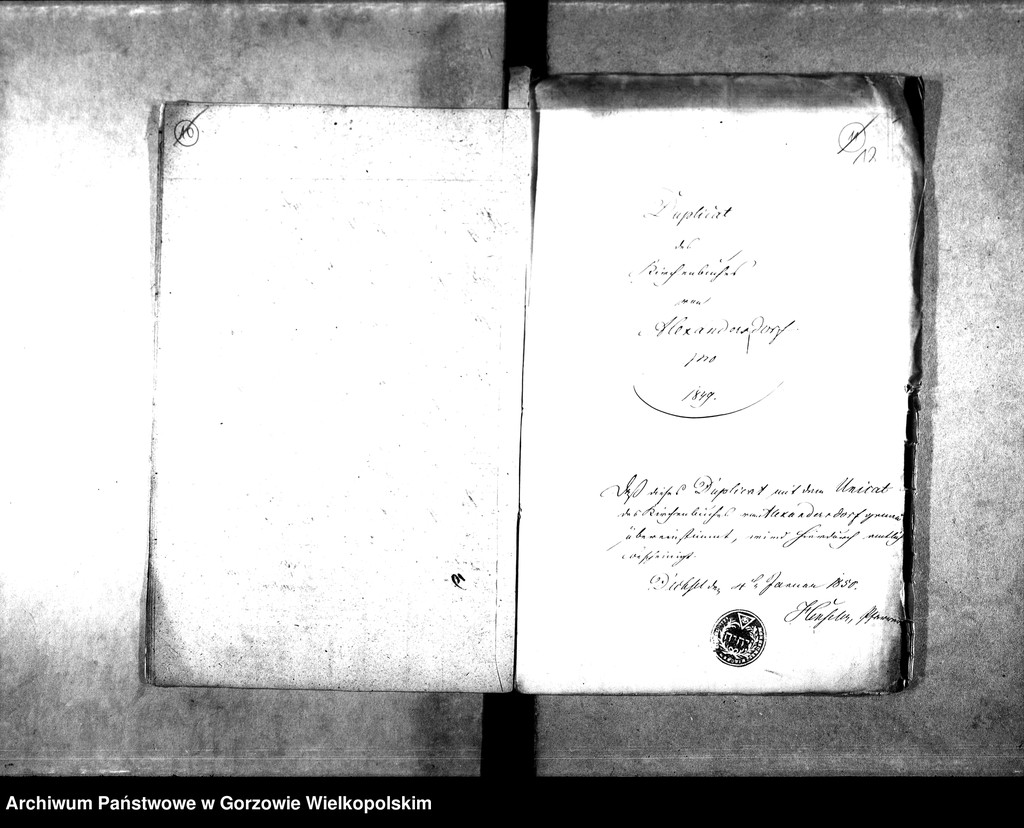 10
11
12
Duplicat
des
Kirchenbuches
von
Alexandersdorf
pro
1849.
Daß dieses Duplicat mit dem Unicat
des Kirchenbuches von Alexandersdorf genau
übereinstimmt, wird hierdurch amtlich
bescheinigt.
den 4t Januar 1850.
Pfarrer
Archiwum Państwowe w Gorzowie Wielkopolskim